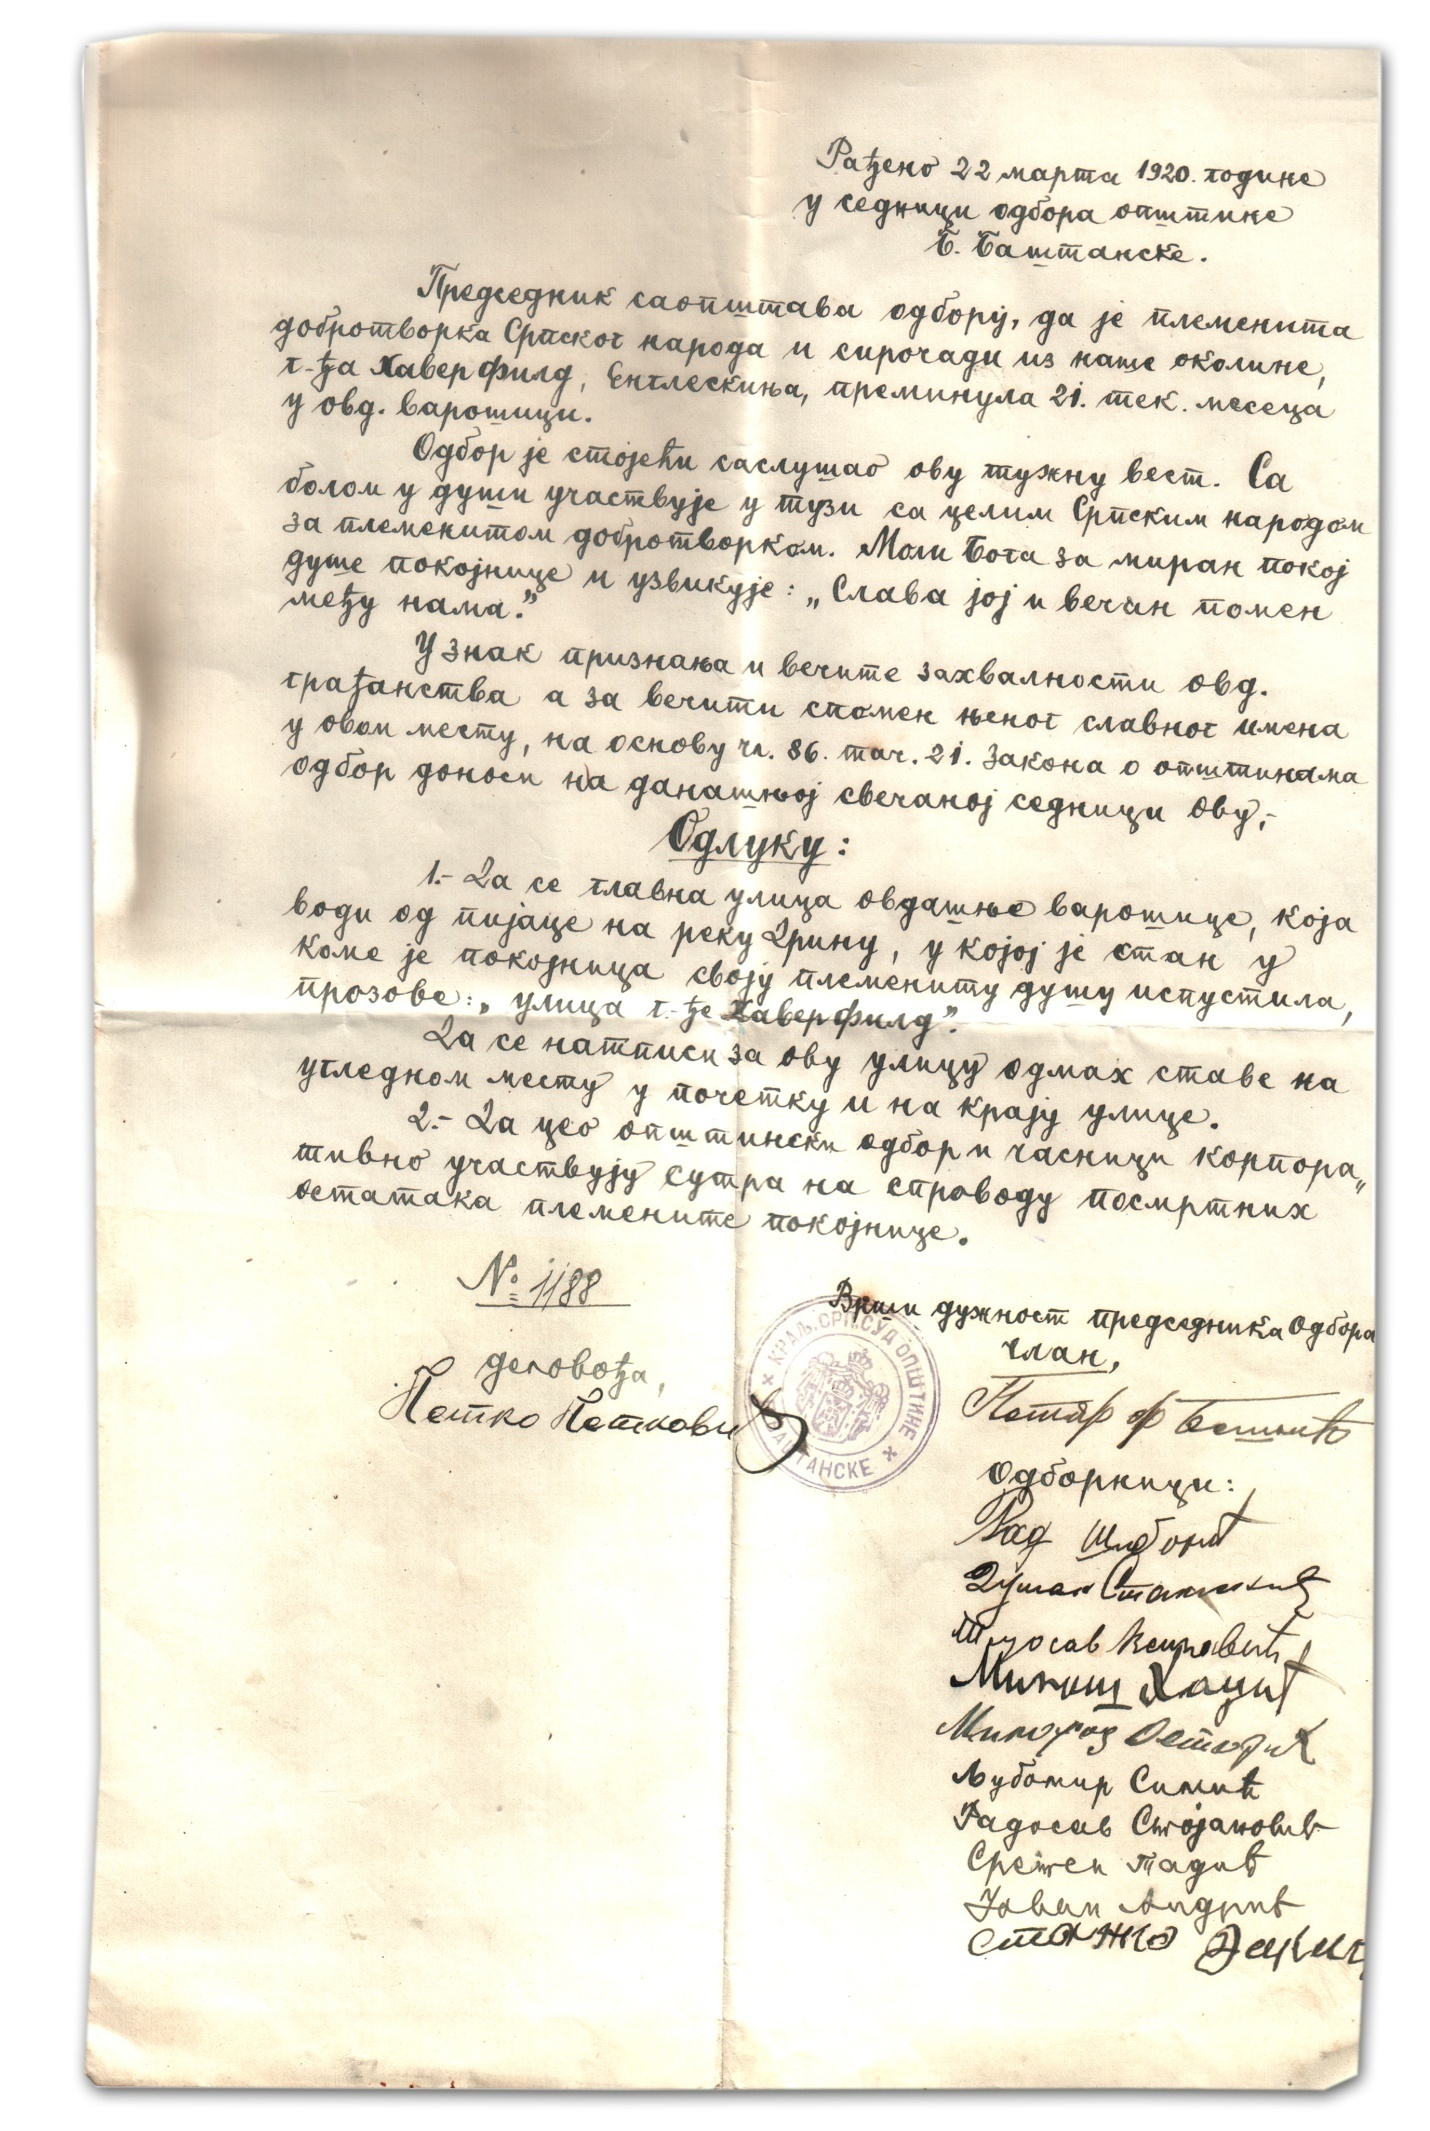 Рађено 22 марта 1920. године
у седници одбора општине
Б. Баштанске.
Председник саопштава одбору, да је племенита
добротворка Српског народа и сирочади из наше околине,
г-ђа Хаверфилд, Енглескиња, преминула 21. тек. месеца
у овд. варошици.
Одбор је стојећи саслушао ову тужну вест. Са
болом у души участвује у тузи са целим Српским народом
за племенитом добротворком. Моли Бога за миран покој
душе покојнице и узвикује: „Слава јој и вечан помен
међу нама.”
У знак признања и вечите захвалности овд.
грађанства а за вечити спомен њеног славног имена
у овом месту, на основу чл. 86. тач. 21. Закона о општинама
одбор доноси на данашњој свечаној седници ову,-
Одлуку:
1.- Да се главна улица овдашње варошице, која
води од пијаце на реку Дрину, у којој је стан у
коме је покојница своју племениту душу испустила,
прозове: „улица г-ђе Хаверфилд”.
Да се натписи за ову улицу одмах ставе на
угледном месту у почетку и на крају улице.
2.- Да цео општински одбор и часници корпора„
тивно участвују сутра на спроводу посмртних
остатака племените покојнице.
№ 1188
Врши дужност председника Одбора
члан,
деловођа,
Петко Петковић
КРАЉ. СРП. СУД ОПШТИНЕ
БАШТАНСКЕ
Петар
одборници:
Рад
Душан
Милош Хаџић
Милорад
Љубомир Симић
Радосав Стојановић
Сретен Тадић
Јован Андрић
Станко